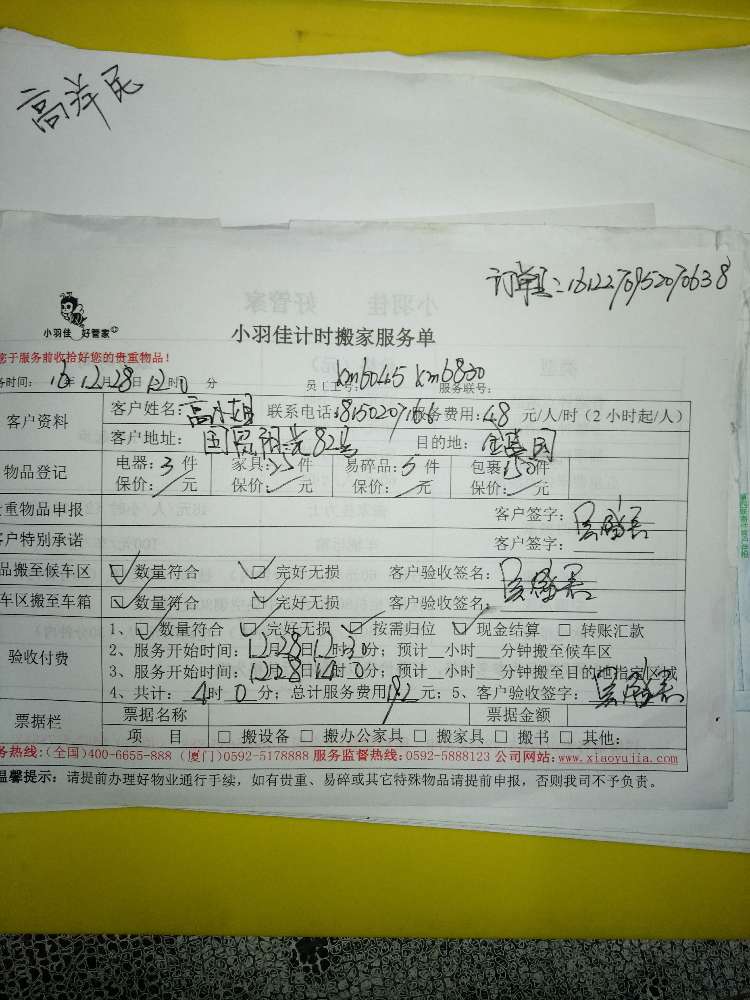 高羊民
订单号:161227095070638
小羽佳 好管家
小羽佳计时搬家服务单
您于服务前收拾好您的贵重物品!
务时间: 16年12月28日12时0分 员工工号: km6045 km6820 服务联号:
客户资料 客户姓名:高小姐 联系电话:8150207166 服务费用:48元/人/时(2小时起/人)
客户地址:国贸阳光82号 目的地:
物品登记 电器:3件 家具:25件 易碎品:5件 包裹:150件
保价: 元 保价: 元 保价: 元 保价: 元
贵重物品申报 客户签字:
客户特别承诺 客户签字:
品搬至候车区 数量符合 完好无损 客户验收签名:
车区搬至车箱 数量符合 完好无损 客户验收签名:
验收付费 1、 数量符合 完好无损 按需归位 现金结算 转账汇款
2、服务开始时间:12月28日12时30分;预计 小时 分钟搬至候车区
3、服务开始时间:12月28日14时0分;预计 小时 分钟搬至目的地指定区域
4、共计: 4时0分;总计服务费用192元;5、客户验收签字:
票据栏 票据名称 票据金额
项 目 搬设备 搬办公家具 搬家具 搬书 其他:
务热线:(全国)400-6655-888 (厦门)0592-5178888 服务监督热线:0592-5888123 公司网站:www.xiaoyujia.com
温馨提示:请提前办理好物业通行手续,如有贵重、易碎或其它特殊物品请提前申报,否则我司不予负责。